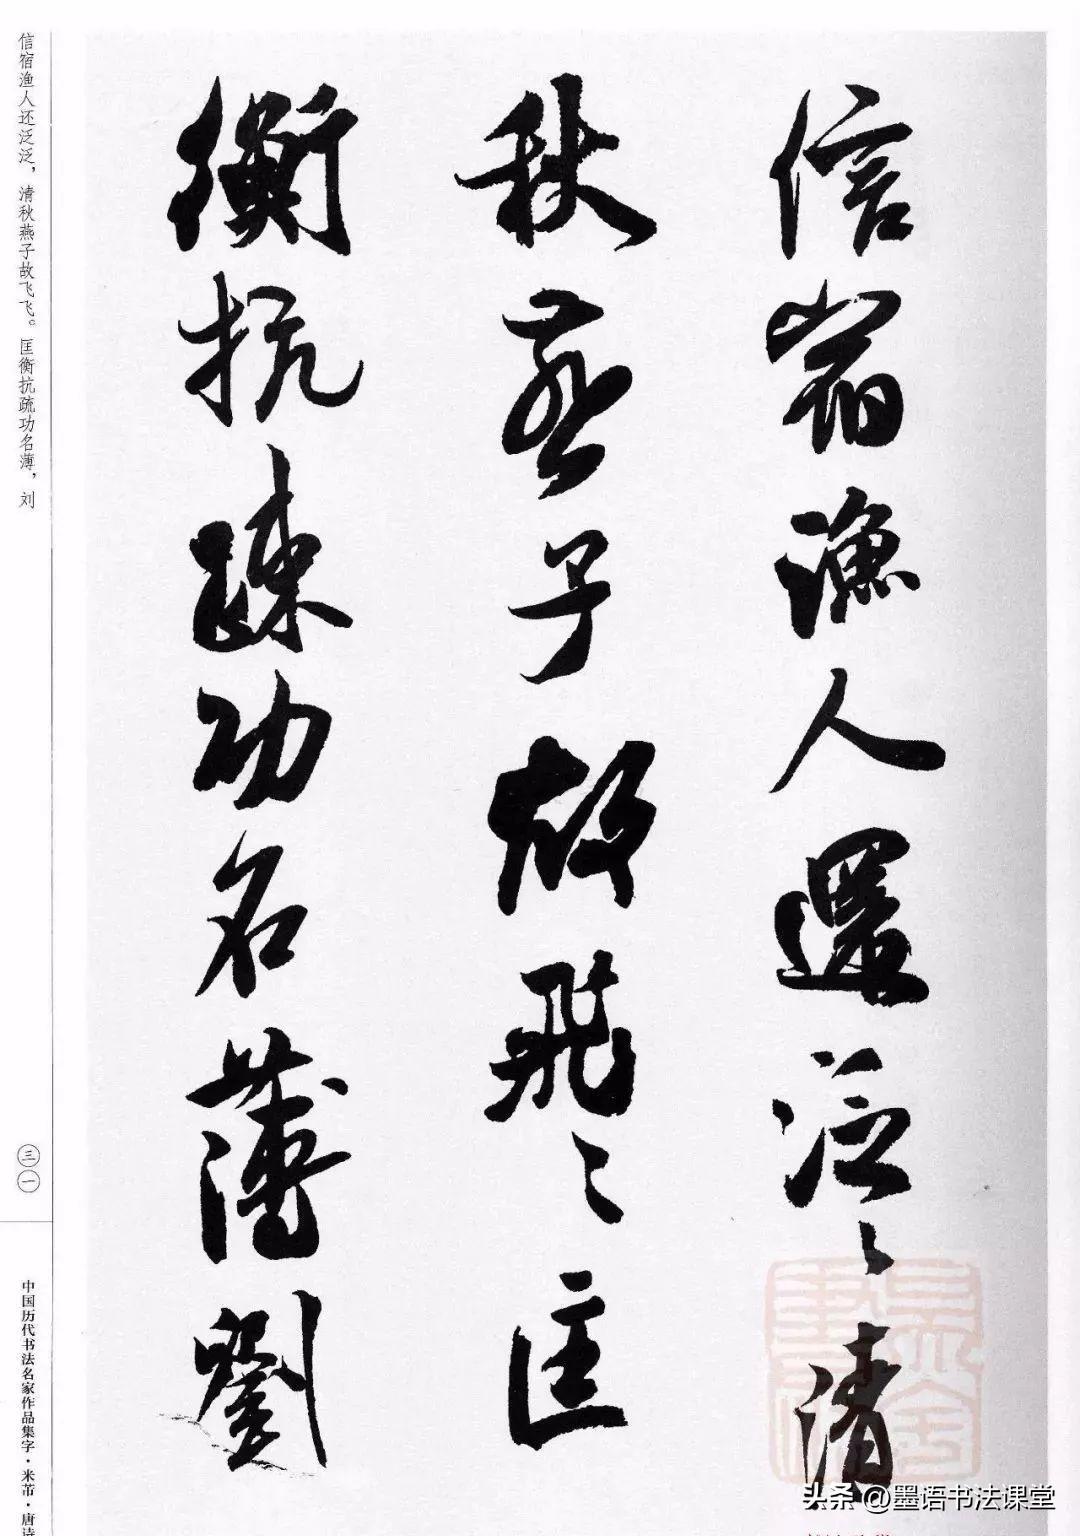 信宿渔人还泛泛，清秋燕子故飞飞。匡衡抗疏功名薄，刘
信宿漁人還泛〻清
秋燕子故飛〻匡
衡抗疎功名薄劉
三一
中国历代书法名家作品集字·米芾·唐诗
头条 @墨语书法课堂